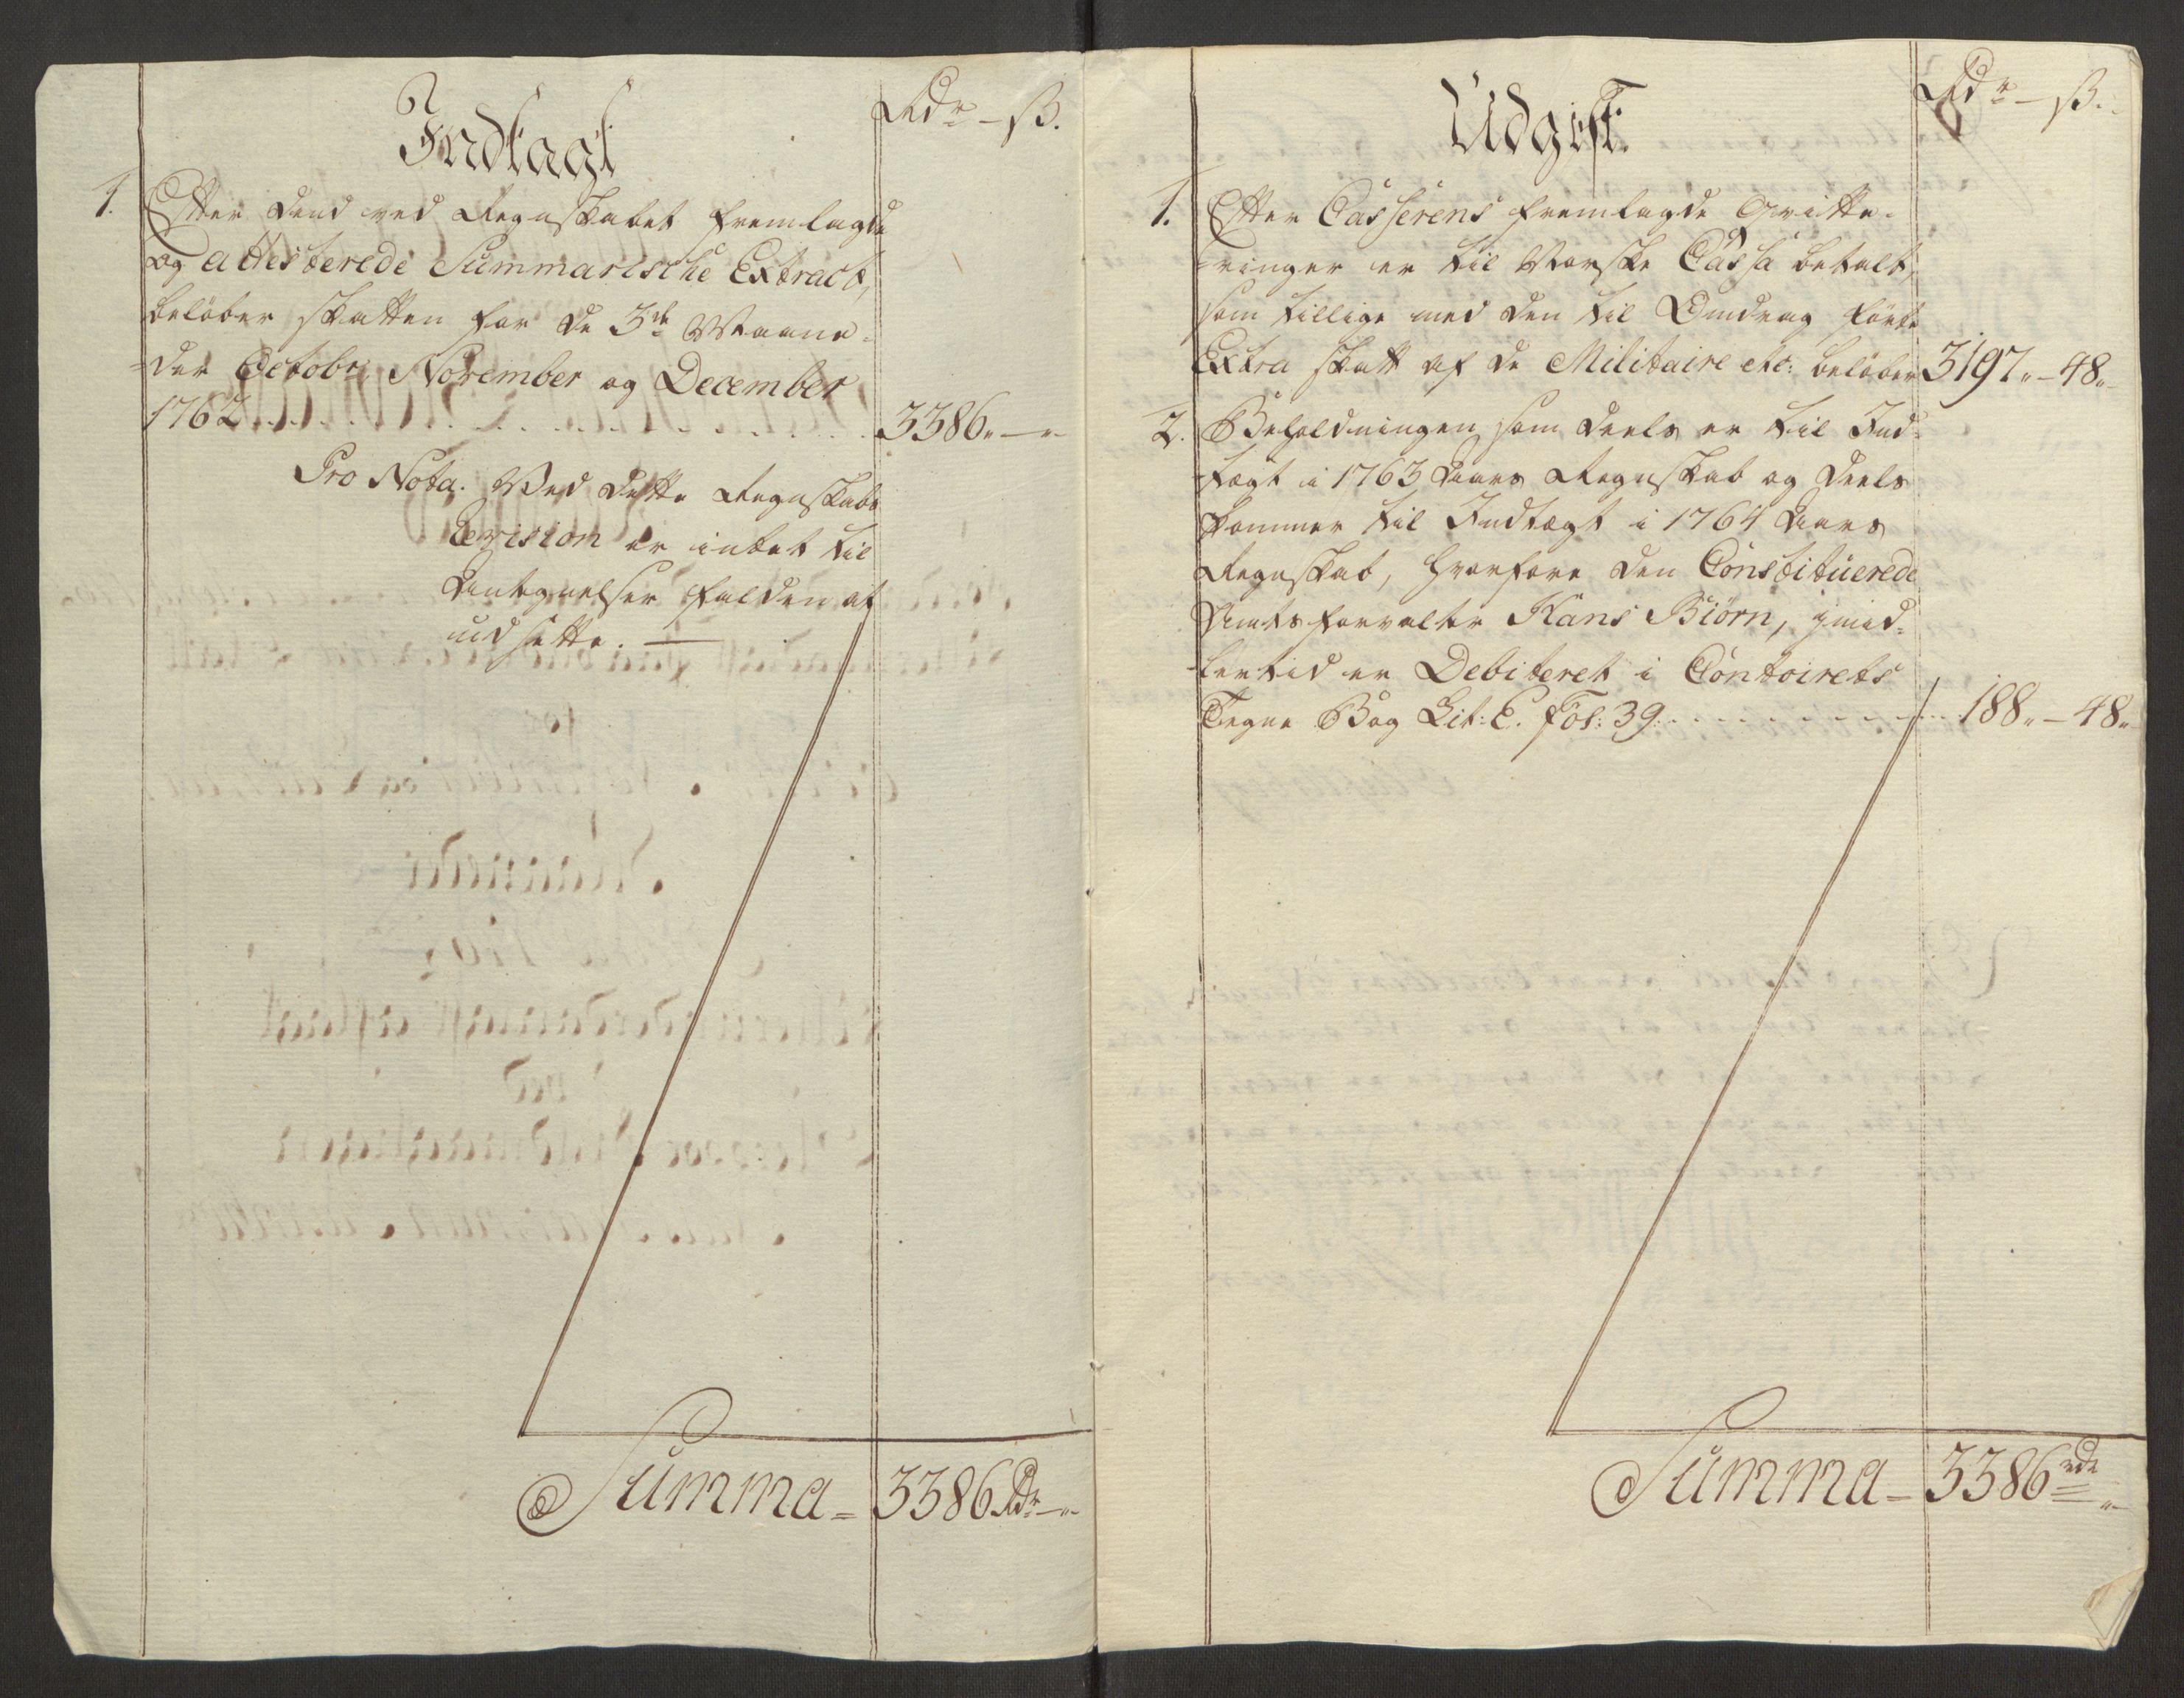 Indtægt
Rdr – ß.
1. Efter dend ved Regnskabet fremlagde
og attesterede Summariske Extract,
beløber Skatten for de 3de Maane-
der Octobr, November og December
1762 . . . . . . . . . . 3386 „ – „
Pro Nota. Ved dette Regnskabs
Revision er intet til
Antegnelser falden at
udsette. —
Summa = 3386 Rdr – „
Udgift.
Rdr – ß.
1. Efter Casserens fremlagde Qvitte-
-ringer er til Norske Cassa betalt,
som tillige med den til Omdrag førte
Extra Skatt af de Militaire etc: beløber 3197 „ – 48 „
2. Beholdningen som deels er til Ind-
-tægt i 1763 Aars Regnskab og deels
kommer til Indtægt i 1764 Aars
Regnskab, hvorfore den Constituerede
Amtsforvalter Hans Biörn, imid-
-lertid er Debiteret i Contoirets
Tegne Bog Lit: E. Fol: 39. . . . . . . . . 188 „ – 48 „
Summa – 3386 rdr „